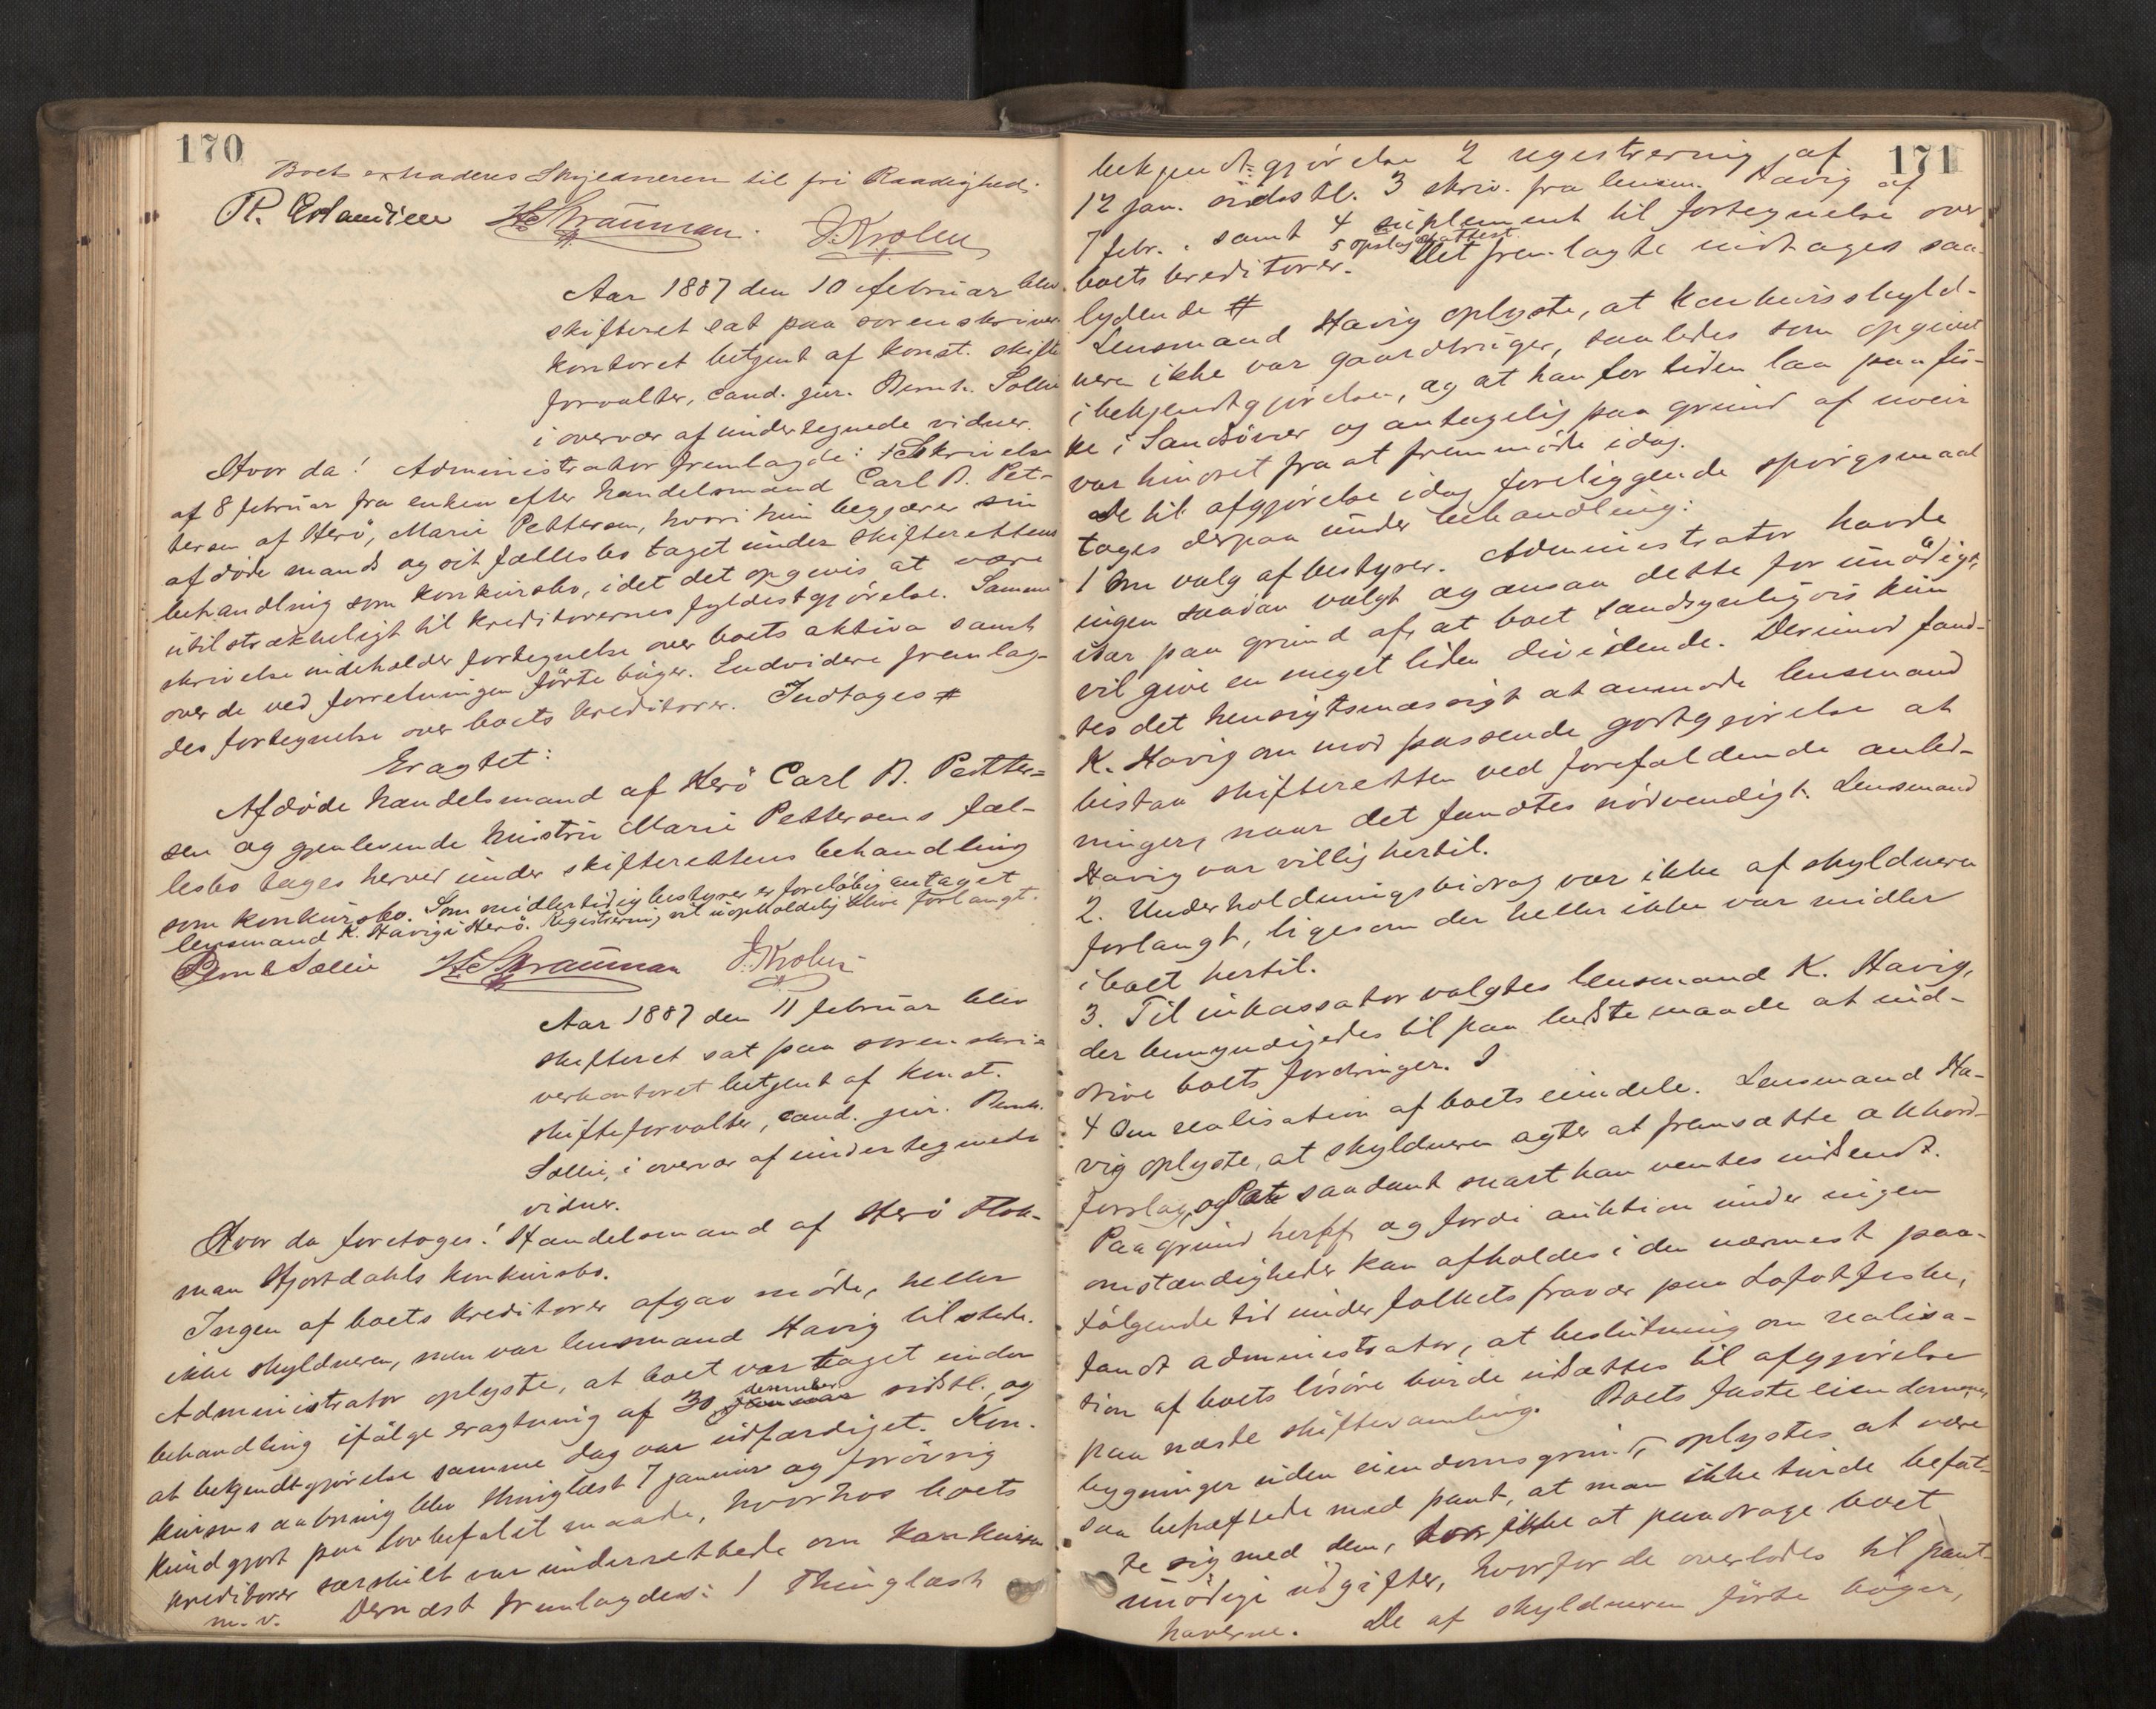 170
Boet extraderes Skyldneren til fri Raadighed.
R. Erlandsen H. Straumann. J. Krolen
Aar 1887 den 10 februar blev
skifteret sat paa sorenskriver-
kontoret betjent af konst. skifte
forvalter, cand. jur. Bernh. Sollie
i overvær af undertegnede vidner.
Hvor da! Administrator fremlagde: 1 Skrivelse
af 8 februar fra enken efter handelsmand Carl B. Pet-
tersen af Herö, Marie Pettersen, hvori hun begjærer sin
afdöde mands og sit fællesbo taget under skifterettens
behandling som konkursbo, idet det opgives at være
utilstrækkeligt til kreditorernes fyldestgjörelse. Samme
skrivelse indeholder fortegnelse over boets aktiva samt
over de ved forretningen förte böger. Endvidere fremlag-
des fortegnelse over boets kreditorer. Indtages #
Eragtet:
Afdöde handelsmand af Herö Carl B. Petter=
sen og gjenlevende hustru Marie Pettersens fæl-
lesbo tages herved under skifterettens behandling
som konkursbo. Som midlertidig bestyrer er forelöbig antaget
lensmand K. Havig i Herö. Registrering vil uopholdelig blive forlangt.
Bernh Sollie H. Straumann J. Krolen
Aar 1887 den 11 februar blev
skifteret sat paa sorenskri-
verkontoret betjent af konst.
skifteforvalter, cand. jur. Bernh.
Sollie, i overvær af undertegnede
vidner.
Hvor da foretoges! Handelsmand af Herö Hol-
man Hjortdahls konkursbo.
Ingen af boets kreditorer afgav möde, heller
ikke skyldneren, men var lensmand Havig tilstede.
Administrator oplyste, at boet var taget under
behandling ifölge eragtning af 30 januar desember sidstl., og
at bekjendtgjörelse samme dag var udfærdiget. Kon-
kursens aabning blev thinglæst 7 januar og forövrig
kundgjort paa lovbefalet maade, hvorhos boets
kreditorer særskilt var underrettede om konkursen
m. v. Dernæst fremlagdes: 1 Thinglæst
171
bekjendtgjörelse 2 registrering af
12 jan. sidstl. 3 skriv. fra lensm. Havig af
7 febr. samt 4 suplement til fortegnelse over
boets kreditorer. 5 opslagsattest. Det fremlagte indtages saa-
lydende #
Lensmand Havig oplyste, at konkursskyld-
neren ikke var gaardbruger, saaledes som opgivet
i bekjendtgjörelsen, og at han for tiden laa paa fis-
ke i Sandsövær og antagelig paa grund af uveir
var hindret fra at fremmöde idag.
De til afgjörelse idag foreliggende spörgsmaal
toges derpaa under behandling:
1 Om valg af bestyrer. Administrator havde
ingen saadan valgt og ansaa dette for unödigt,
især paa grund af, at boet sandsynligvis kun
vil give en meget liden dividende. Derimod fand-
tes det hensigtsmæssigt at anmode lensmand
K. Havig om mod passende godtgjörelse at
bistaa skifteretten ved forefaldende anled-
ninger, naar det fandtes nödvendigt. Lensmand
Havig var villig hertil.
2. Underholdningsbidrag var ikke af skyldneren
forlangt, ligesom der heller ikke var midler
i boet hertil.
3. Til inkassator valgtes lensmand K. Havig,
der bemyndigedes til paa bedste maade at ind-
drive boets fordringer.
4 Om realisation af boets eiendele. Lensmand Ha-
vig oplyste, at skyldneren agter at fremsætte akkord-
forslag, og at saadant snart kan ventes indsendt.
Paa grund heraf, og fordi auktion under ingen
omstændigheder kan afholdes i den nærmest paa-
fölgende tid under folkets fravær paa Lofotfiske,
fandt administrator, at beslutning om realisa-
tion af boets lösöre burde udsættes til afgjörelse
paa næste skiftesamling. Boets faste eiendomme,
bygninger uden eiendomsgrund, oplystes at være
saa behæftede med pant, at man ikke turde befat-
te sig med dem, for ikke at paadrage boet
unödige udgifter, hvorfor de overlodes til pant-
haverne. De af skyldneren förte böger,